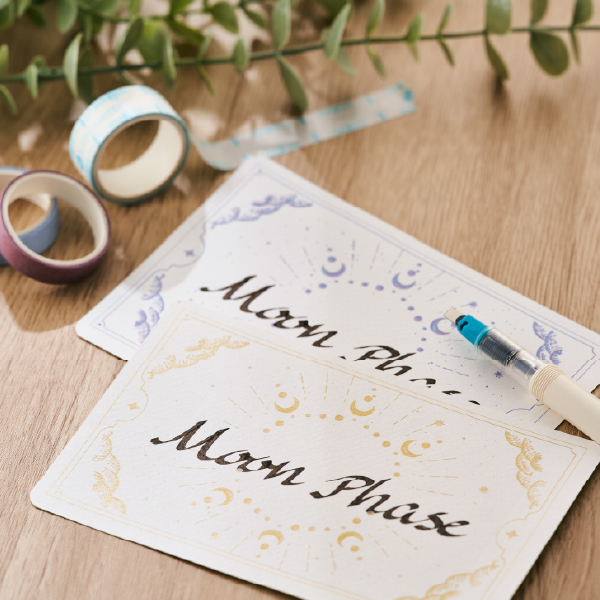 Moon Phase
Moon Phase